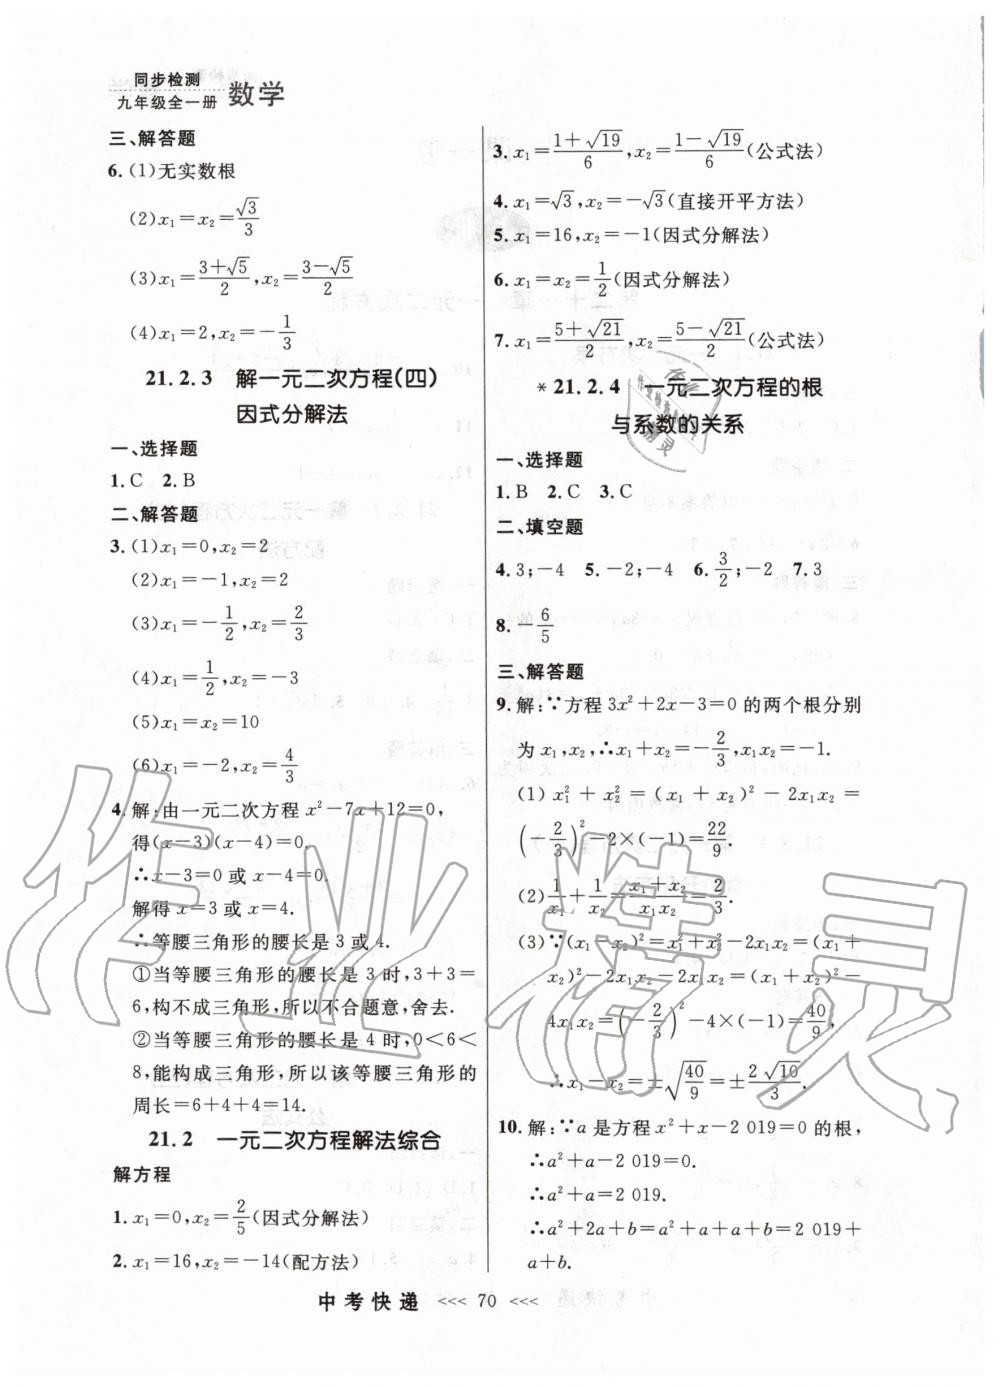 同步检测
九年级全一册 数学
三、解答题
6. (1)无实数根
(2)x₁=x₂=√3/3
(3)x₁=(3+√5)/2,x₂=(3-√5)/2
(4)x₁=2,x₂=-1/3
21.2.3 解一元二次方程(四)
因式分解法
一、选择题
1. C 2. B
二、解答题
3. (1)x₁=0,x₂=2
(2)x₁=-1,x₂=2
(3)x₁=-1/2,x₂=2/3
(4)x₁=1/2,x₂=-3
(5)x₁=x₂=10
(6)x₁=-2,x₂=4/3
4. 解:由一元二次方程 x²-7x+12=0,
得(x-3)(x-4)=0.
∴x-3=0 或 x-4=0.
解得 x=3 或 x=4.
∴等腰三角形的腰长是 3 或 4.
①当等腰三角形的腰长是 3 时,3+3=
6,构不成三角形,所以不合题意,舍去.
②当等腰三角形的腰长是 4 时,0<6<
8,能构成三角形,所以该等腰三角形的
周长=6+4+4=14.
21.2 一元二次方程解法综合
解方程
1. x₁=0,x₂=2/5(因式分解法)
2. x₁=16,x₂=-14(配方法)
3. x₁=(1+√19)/6,x₂=(1-√19)/6(公式法)
4. x₁=√3,x₂=-√3(直接开平方法)
5. x₁=16,x₂=-1(因式分解法)
6. x₁=x₂=1/2(因式分解法)
7. x₁=(5+√21)/2,x₂=(5-√21)/2(公式法)
*21.2.4 一元二次方程的根
与系数的关系
一、选择题
1. B 2. C 3. C
二、填空题
4. 3;-4 5. -2;-4 6. 3/2;-2 7. 3
8. -6/5
三、解答题
9. 解:∵方程 3x²+2x-3=0 的两个根分别
为 x₁,x₂,∴x₁+x₂=-2/3,x₁x₂=-1.
(1) x₁²+x₂²=(x₁+x₂)²-2x₁x₂=
(-2/3)²-2×(-1)=22/9.
(2)1/x₁+1/x₂=(x₁+x₂)/(x₁x₂)=2/3.
(3)∵(x₁-x₂)²=x₁²+x₂²-2x₁x₂=(x₁+
x₂)²-2x₁x₂-2x₁x₂=(x₁+x₂)²-
4x₁x₂=(-2/3)²-4×(-1)=40/9,
∴x₁-x₂=±√(40/9)=±2√10/3.
10. 解:∵a是方程 x²+x-2 019=0 的根,
∴a²+a-2 019=0.
∴a²+a=2 019.
∴a²+2a+b=a²+a+a+b=2 019+
a+b.
中考快递 <<< 70 <<<
作业精灵